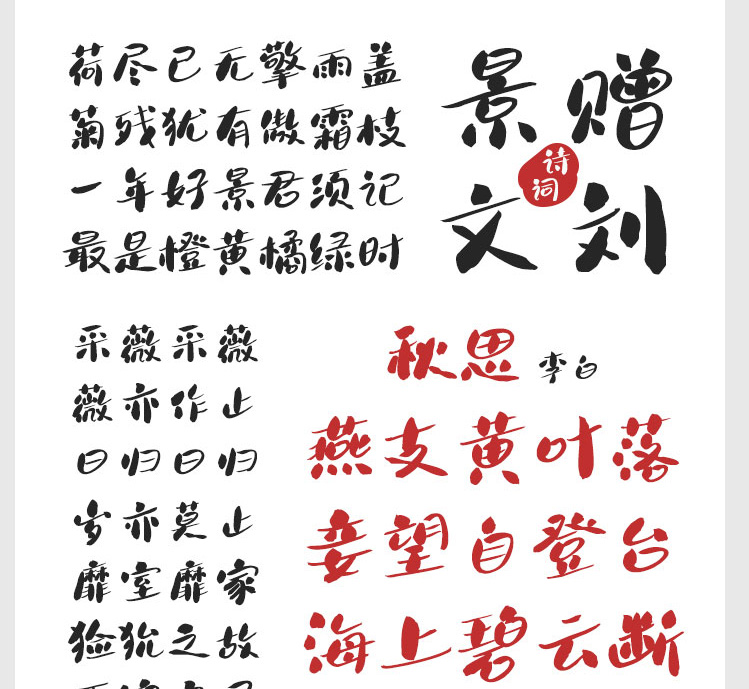 荷尽已无擎雨盖
菊残犹有傲霜枝
一年好景君须记
最是橙黄橘绿时
赠刘
景文
诗词
采薇采薇
薇亦作止
曰归曰归
岁亦莫止
靡室靡家
猃狁之故
秋思 李白
燕支黄叶落
妾望自登台
海上碧云断